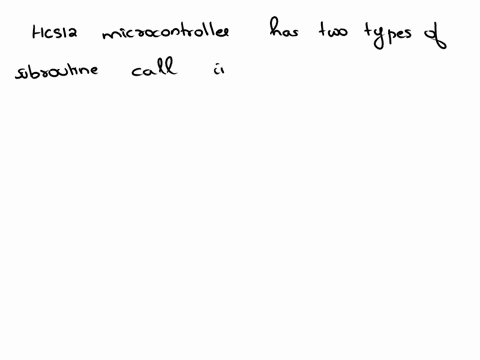 HCS12 microcontroller has two types of
subroutine call i